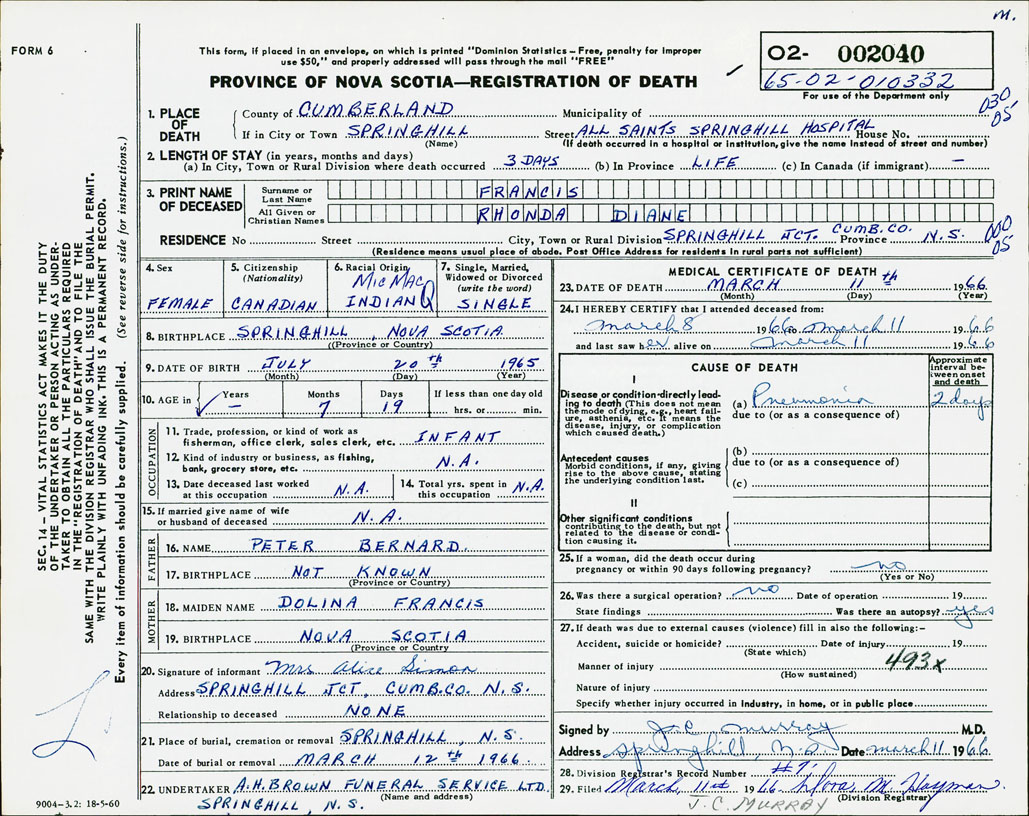 M.
FORM 6
This form, if placed in an envelope, on which is printed "Dominion Statistics – Free, penalty for improper
use $50," and properly addressed will pass through the mail "FREE"
PROVINCE OF NOVA SCOTIA—REGISTRATION OF DEATH
02- 002040
65-02-010332
For use of the Department only
1. PLACE OF DEATH
County of CUMBERLAND Municipality of
030
05
If in City or Town SPRINGHILL Street ALL SAINTS SPRINGHILL HOSPITAL House No.
(Name) (If death occurred in a hospital or institution, give the name instead of street and number)
2. LENGTH OF STAY (in years, months and days)
(a) In City, Town or Rural Division where death occurred 3 DAYS (b) In Province LIFE (c) In Canada (if immigrant) —
3. PRINT NAME OF DECEASED
Surname or Last Name FRANCIS
All Given or Christian Names RHONDA DIANE
RESIDENCE No Street City, Town or Rural Division SPRINGHILL JCT. CUMB.CO. Province N.S.
000
05
(Residence means usual place of abode. Post Office Address for residents in rural parts not sufficient)
4. Sex
FEMALE
5. Citizenship
(Nationality)
CANADIAN
6. Racial Origin
MICMAC
INDIAN
7. Single, Married,
Widowed or Divorced
(write the word)
SINGLE
8. BIRTHPLACE SPRINGHILL, NOVA SCOTIA
(Province or Country)
9. DATE OF BIRTH JULY 20th 1965
(Month) (Day) (Year)
10. AGE in Years Months Days If less than one day old
– 7 19 hrs. or min.
OCCUPATION
11. Trade, profession, or kind of work as
fisherman, office clerk, sales clerk, etc. INFANT
12. Kind of industry or business, as fishing,
bank, grocery store, etc. N.A.
13. Date deceased last worked
at this occupation N.A.
14. Total yrs. spent in
this occupation N.A.
15. If married give name of wife
or husband of deceased N.A.
FATHER
16. NAME PETER BERNARD.
17. BIRTHPLACE NOT KNOWN
(Province or Country)
MOTHER
18. MAIDEN NAME DOLINA FRANCIS
19. BIRTHPLACE NOVA SCOTIA
(Province or Country)
20. Signature of informant Mrs Alice Simon
Address SPRINGHILL JCT, CUMB.CO. N.S.
Relationship to deceased NONE
21. Place of burial, cremation or removal SPRINGHILL, N.S.
Date of burial or removal MARCH 12th 1966
22. UNDERTAKER A.H. BROWN FUNERAL SERVICE LTD.
(Name and address)
SPRINGHILL, N.S.
MEDICAL CERTIFICATE OF DEATH
23. DATE OF DEATH MARCH 11th 1966
(Month) (Day) (Year)
24. I HEREBY CERTIFY that I attended deceased from:
March 8 1966 to March 11 1966
and last saw her alive on March 11 1966
CAUSE OF DEATH
Approximate
interval be-
tween onset
and death
I
Disease or condition directly lead-
ing to death (This does not mean
the mode of dying, e.g., heart fail-
ure, asthenia, etc. It means the
disease, injury, or complication
which caused death.)
(a) Pneumonia 2 days
due to (or as a consequence of)
Antecedent causes
Morbid conditions, if any, giving
rise to the above cause, stating
the underlying condition last.
(b)
due to (or as a consequence of)
(c)
II
Other significant conditions
contributing to the death, but not
related to the disease or condi-
tion causing it.
25. If a woman, did the death occur during
pregnancy or within 90 days following pregnancy? no
(Yes or No)
26. Was there a surgical operation? no Date of operation 19
State findings Was there an autopsy? yes
27. If death was due to external causes (violence) fill in also the following:–
Accident, suicide or homicide? Date of injury 19
(State which)
Manner of injury 493x
(How sustained)
Nature of injury
Specify whether injury occurred in industry, in home, or in public place
Signed by J.C. Murray M.D.
Address Springhill, N.S. Date March 11 1966
28. Division Registrar's Record Number #7
29. Filed March 11st 1966 M. Hayman
(Division Registrar)
J.C. MURRAY
9004-3.2: 18-5-60
SEC. 14 – VITAL STATISTICS ACT MAKES IT THE DUTY
OF THE UNDERTAKER OR PERSON ACTING AS UNDER-
TAKER TO OBTAIN ALL THE PARTICULARS REQUIRED
IN THE "REGISTRATION OF DEATH" AND TO FILE THE
SAME WITH THE DIVISION REGISTRAR WHO SHALL ISSUE THE BURIAL PERMIT.
WRITE PLAINLY WITH UNFADING INK. THIS IS A PERMANENT RECORD.
Every item of information should be carefully supplied. (See reverse side for instructions.)